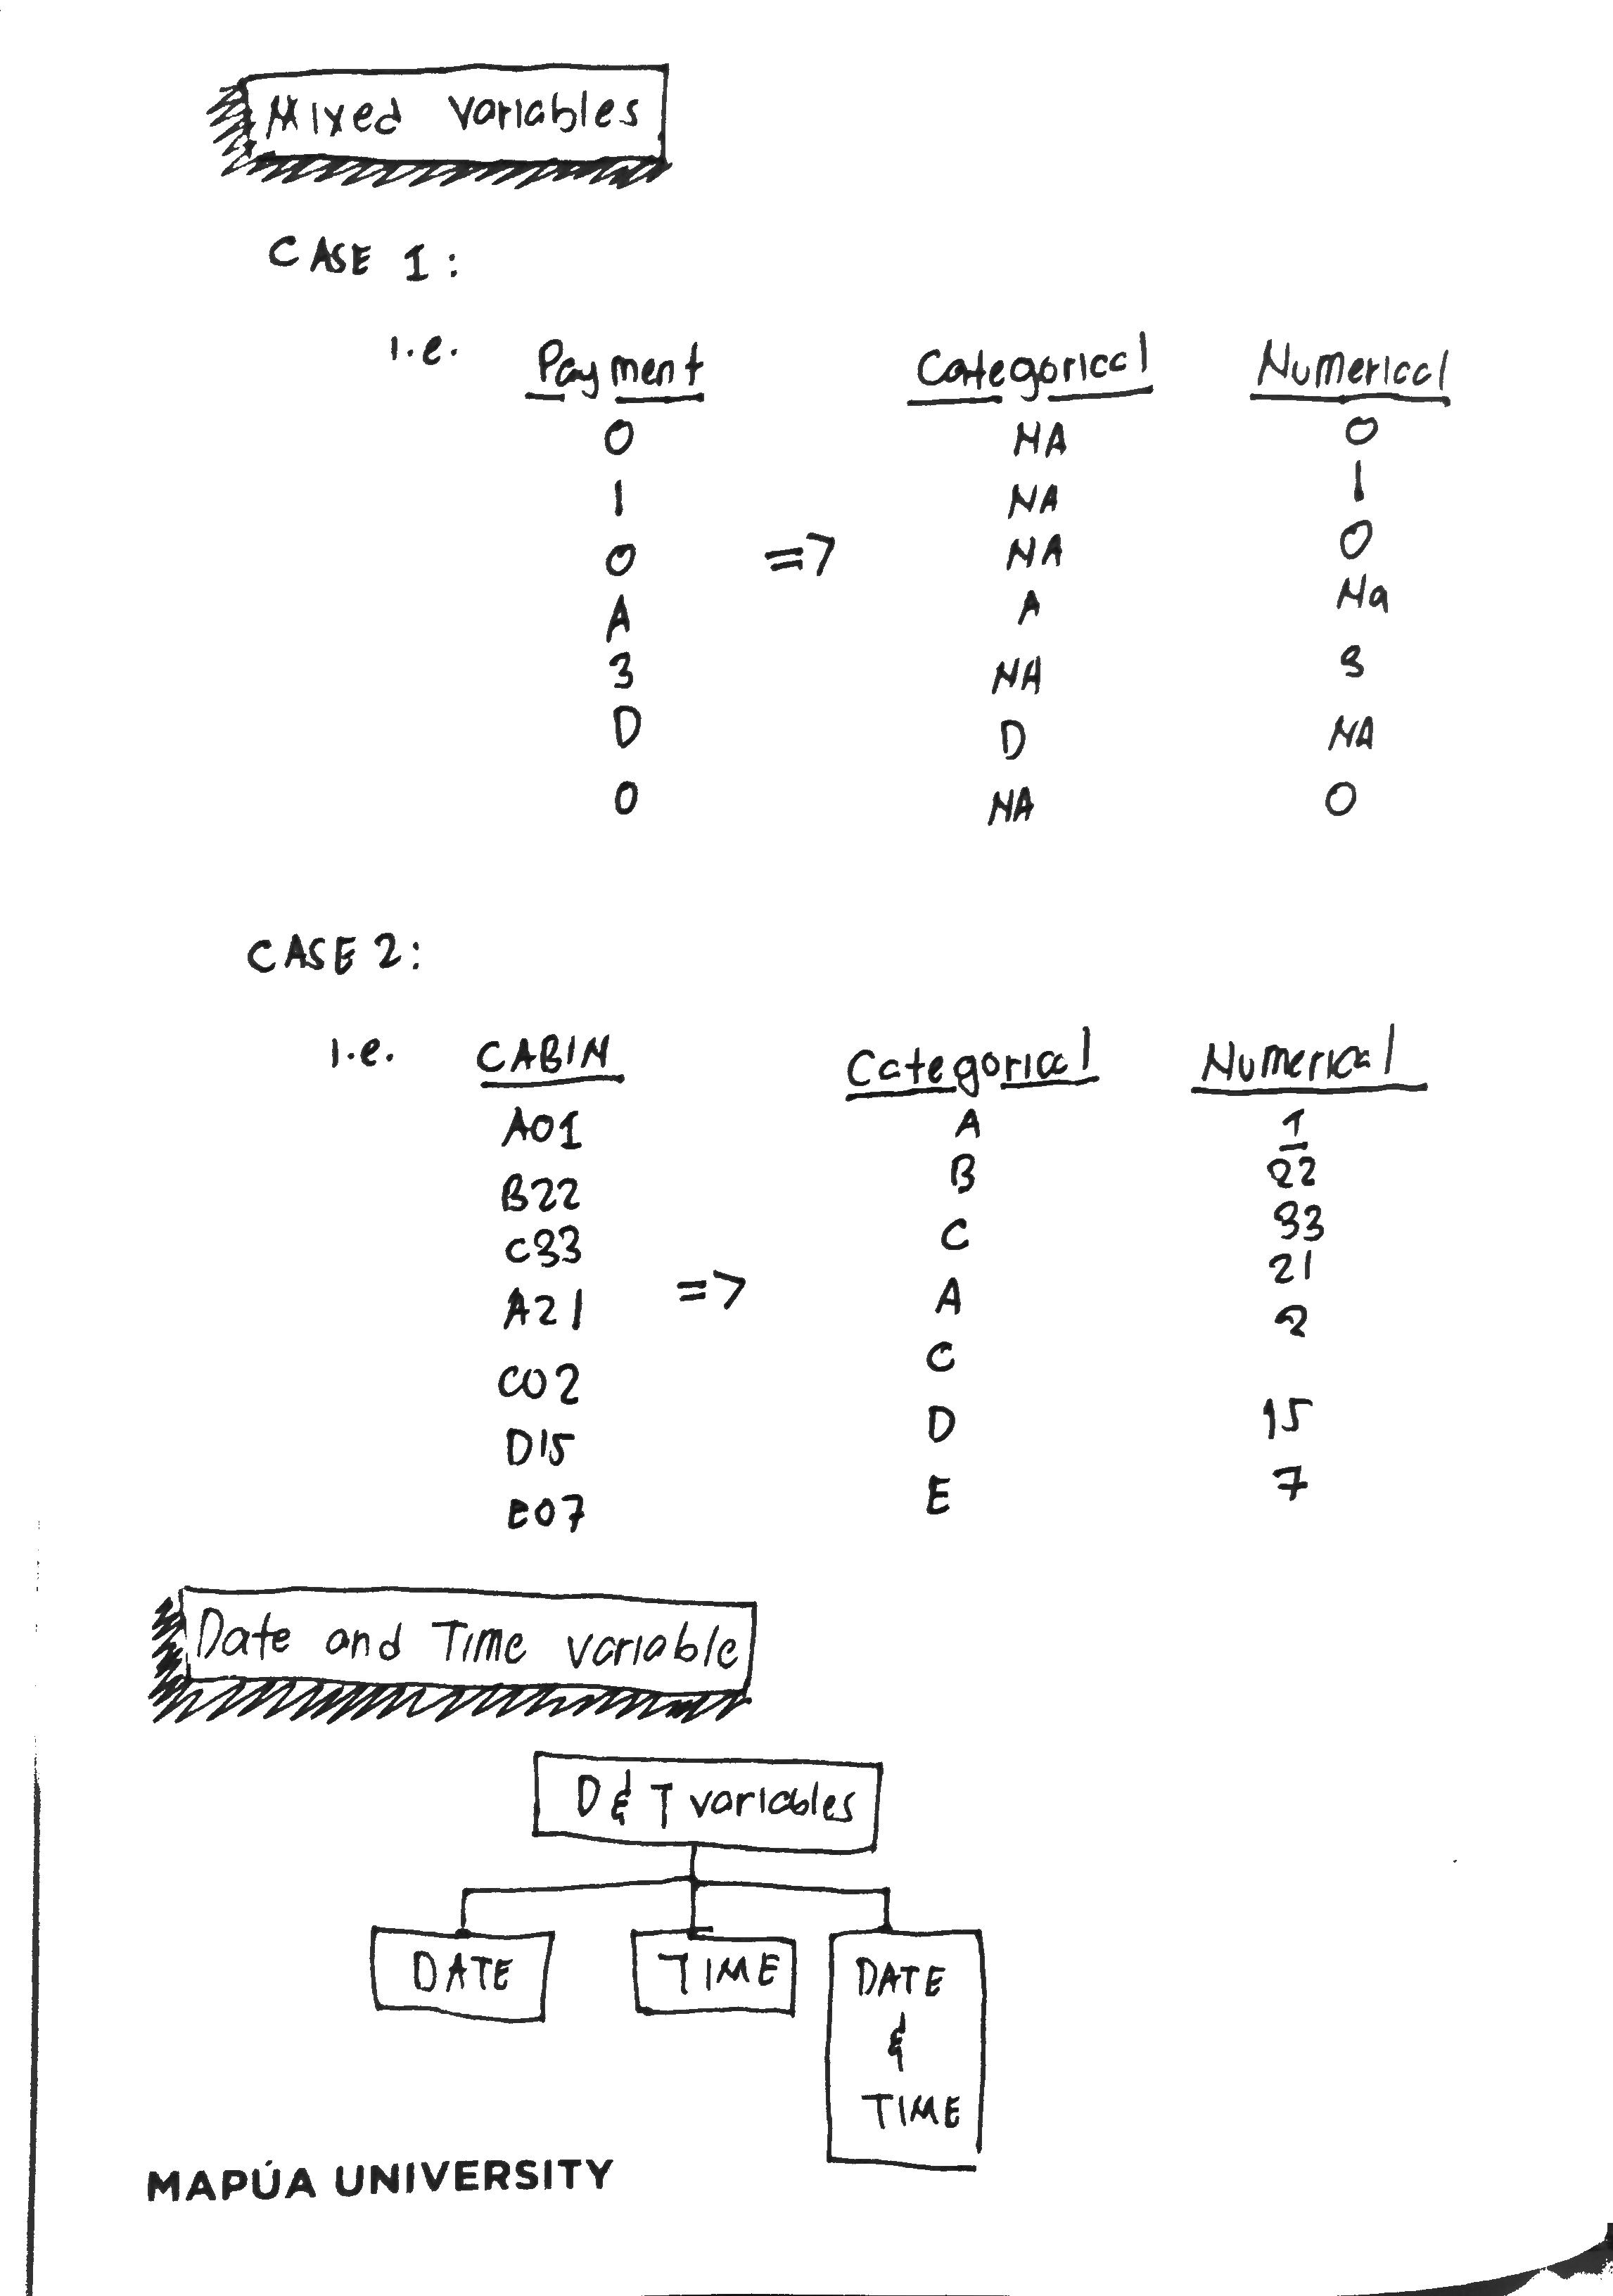 Mixed variables
CASE 1:
i.e. Payment Categorical Numerical
0 NA 0
1 NA 1
0 => NA 0
A A Na
3 NA 3
D D NA
0 NA 0
CASE 2:
i.e. CABIN Categorical Numerical
A01 A 1
B22 B 22
C33 C 33
A21 => A 21
C02 C 2
D15 D 15
E07 E 7
Date and Time variable
D & T variables
DATE TIME DATE
&
TIME
MAPÚA UNIVERSITY